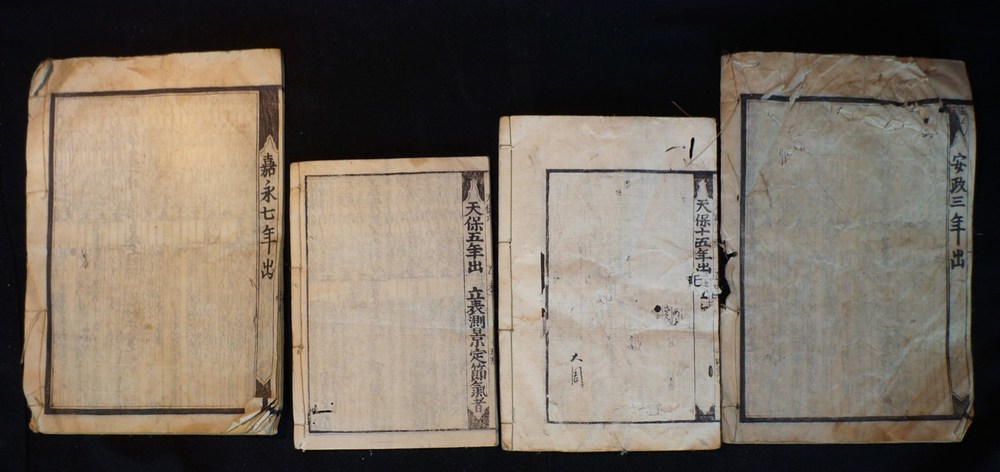 嘉永七年出
天保五年出 立表測景定節氣者
天保十五年出
大周
安政三年出